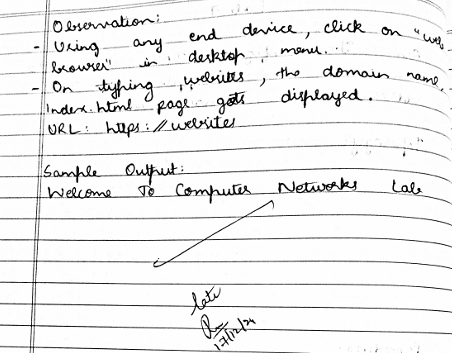 Observation:
- Using any end device, click on "web
browser" in desktop menu.
- On typing websites, the domain name,
index.html page gets displayed.
URL: https://websites
Sample Output:
Welcome To Computer Networks Lab
late
17/12/24